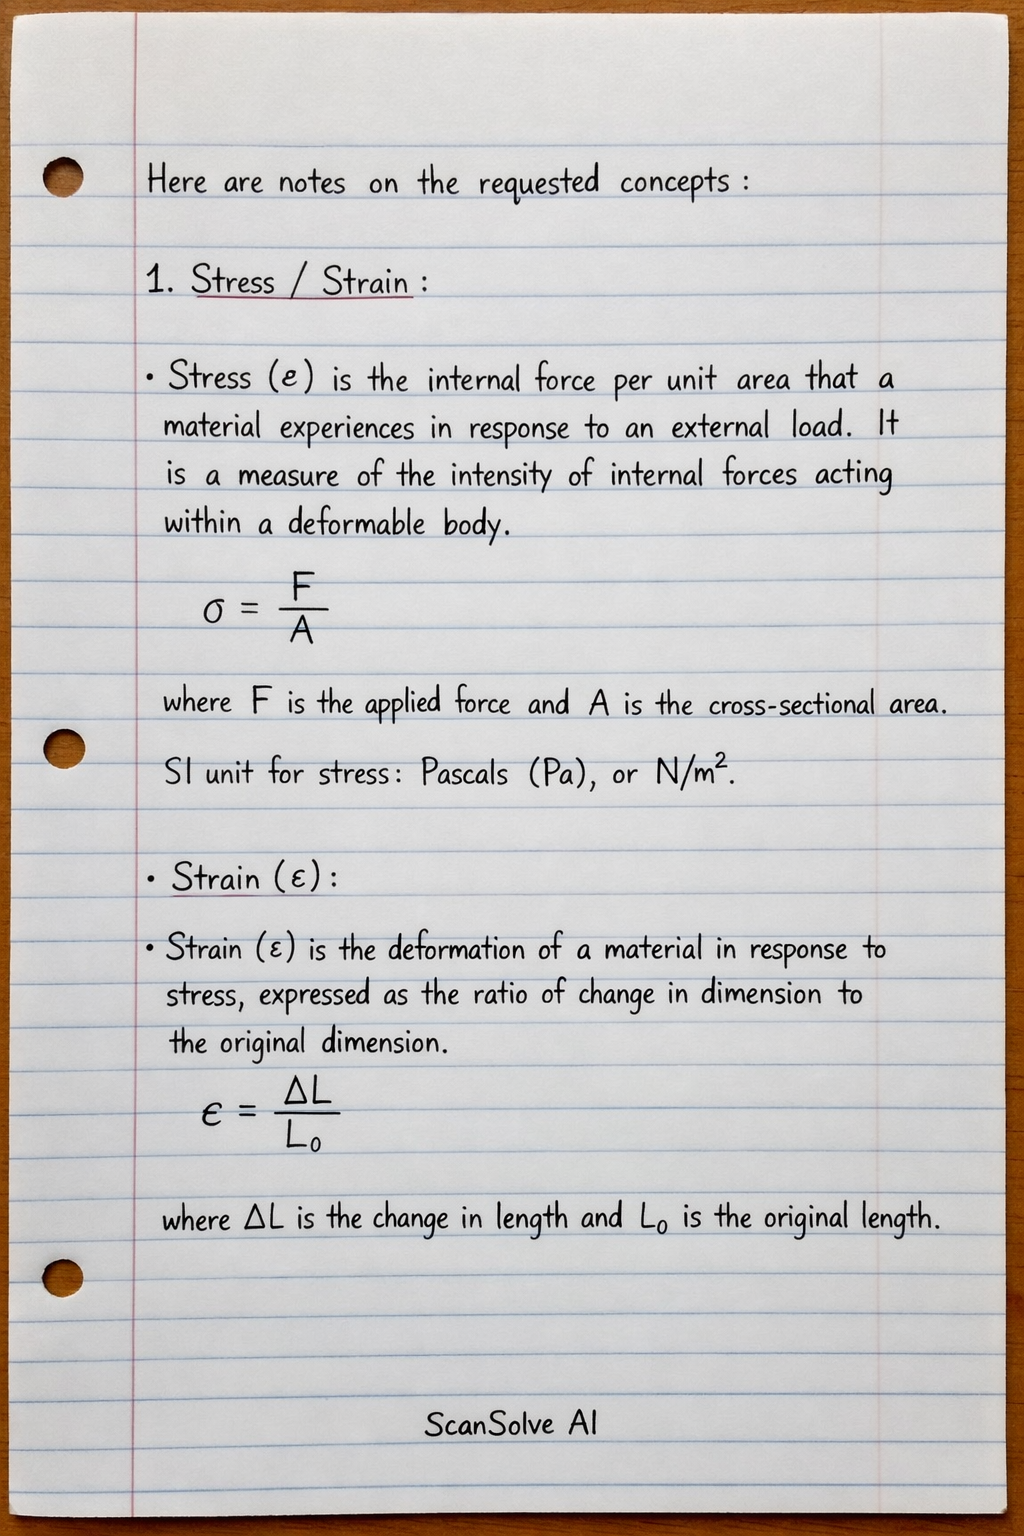 Here are notes on the requested concepts :
1. Stress / Strain :
• Stress (e) is the internal force per unit area that a
material experiences in response to an external load. It
is a measure of the intensity of internal forces acting
within a deformable body.
σ = F/A
where F is the applied force and A is the cross-sectional area.
SI unit for stress: Pascals (Pa), or N/m².
• Strain (ε) :
• Strain (ε) is the deformation of a material in response to
stress, expressed as the ratio of change in dimension to
the original dimension.
ε = ΔL/L₀
where ΔL is the change in length and L₀ is the original length.
ScanSolve AI